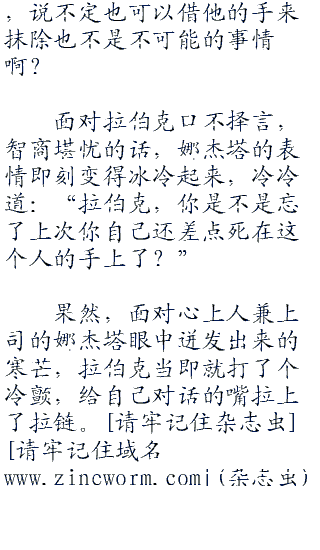 ，说不定也可以借他的手来
抹除也不是不可能的事情
啊？
面对拉伯克口不择言，
智商堪忧的话，娜杰塔的表
情即刻变得冰冷起来，冷冷
道：“拉伯克，你是不是忘
了上次你自己还差点死在这
个人的手上了？”
果然，面对心上人兼上
司的娜杰塔眼中迸发出来的
寒芒，拉伯克当即就打了个
冷颤，给自己对话的嘴拉上
了拉链。[请牢记住杂志虫]
[请牢记住域名
www.zineworm.com|(杂志虫)